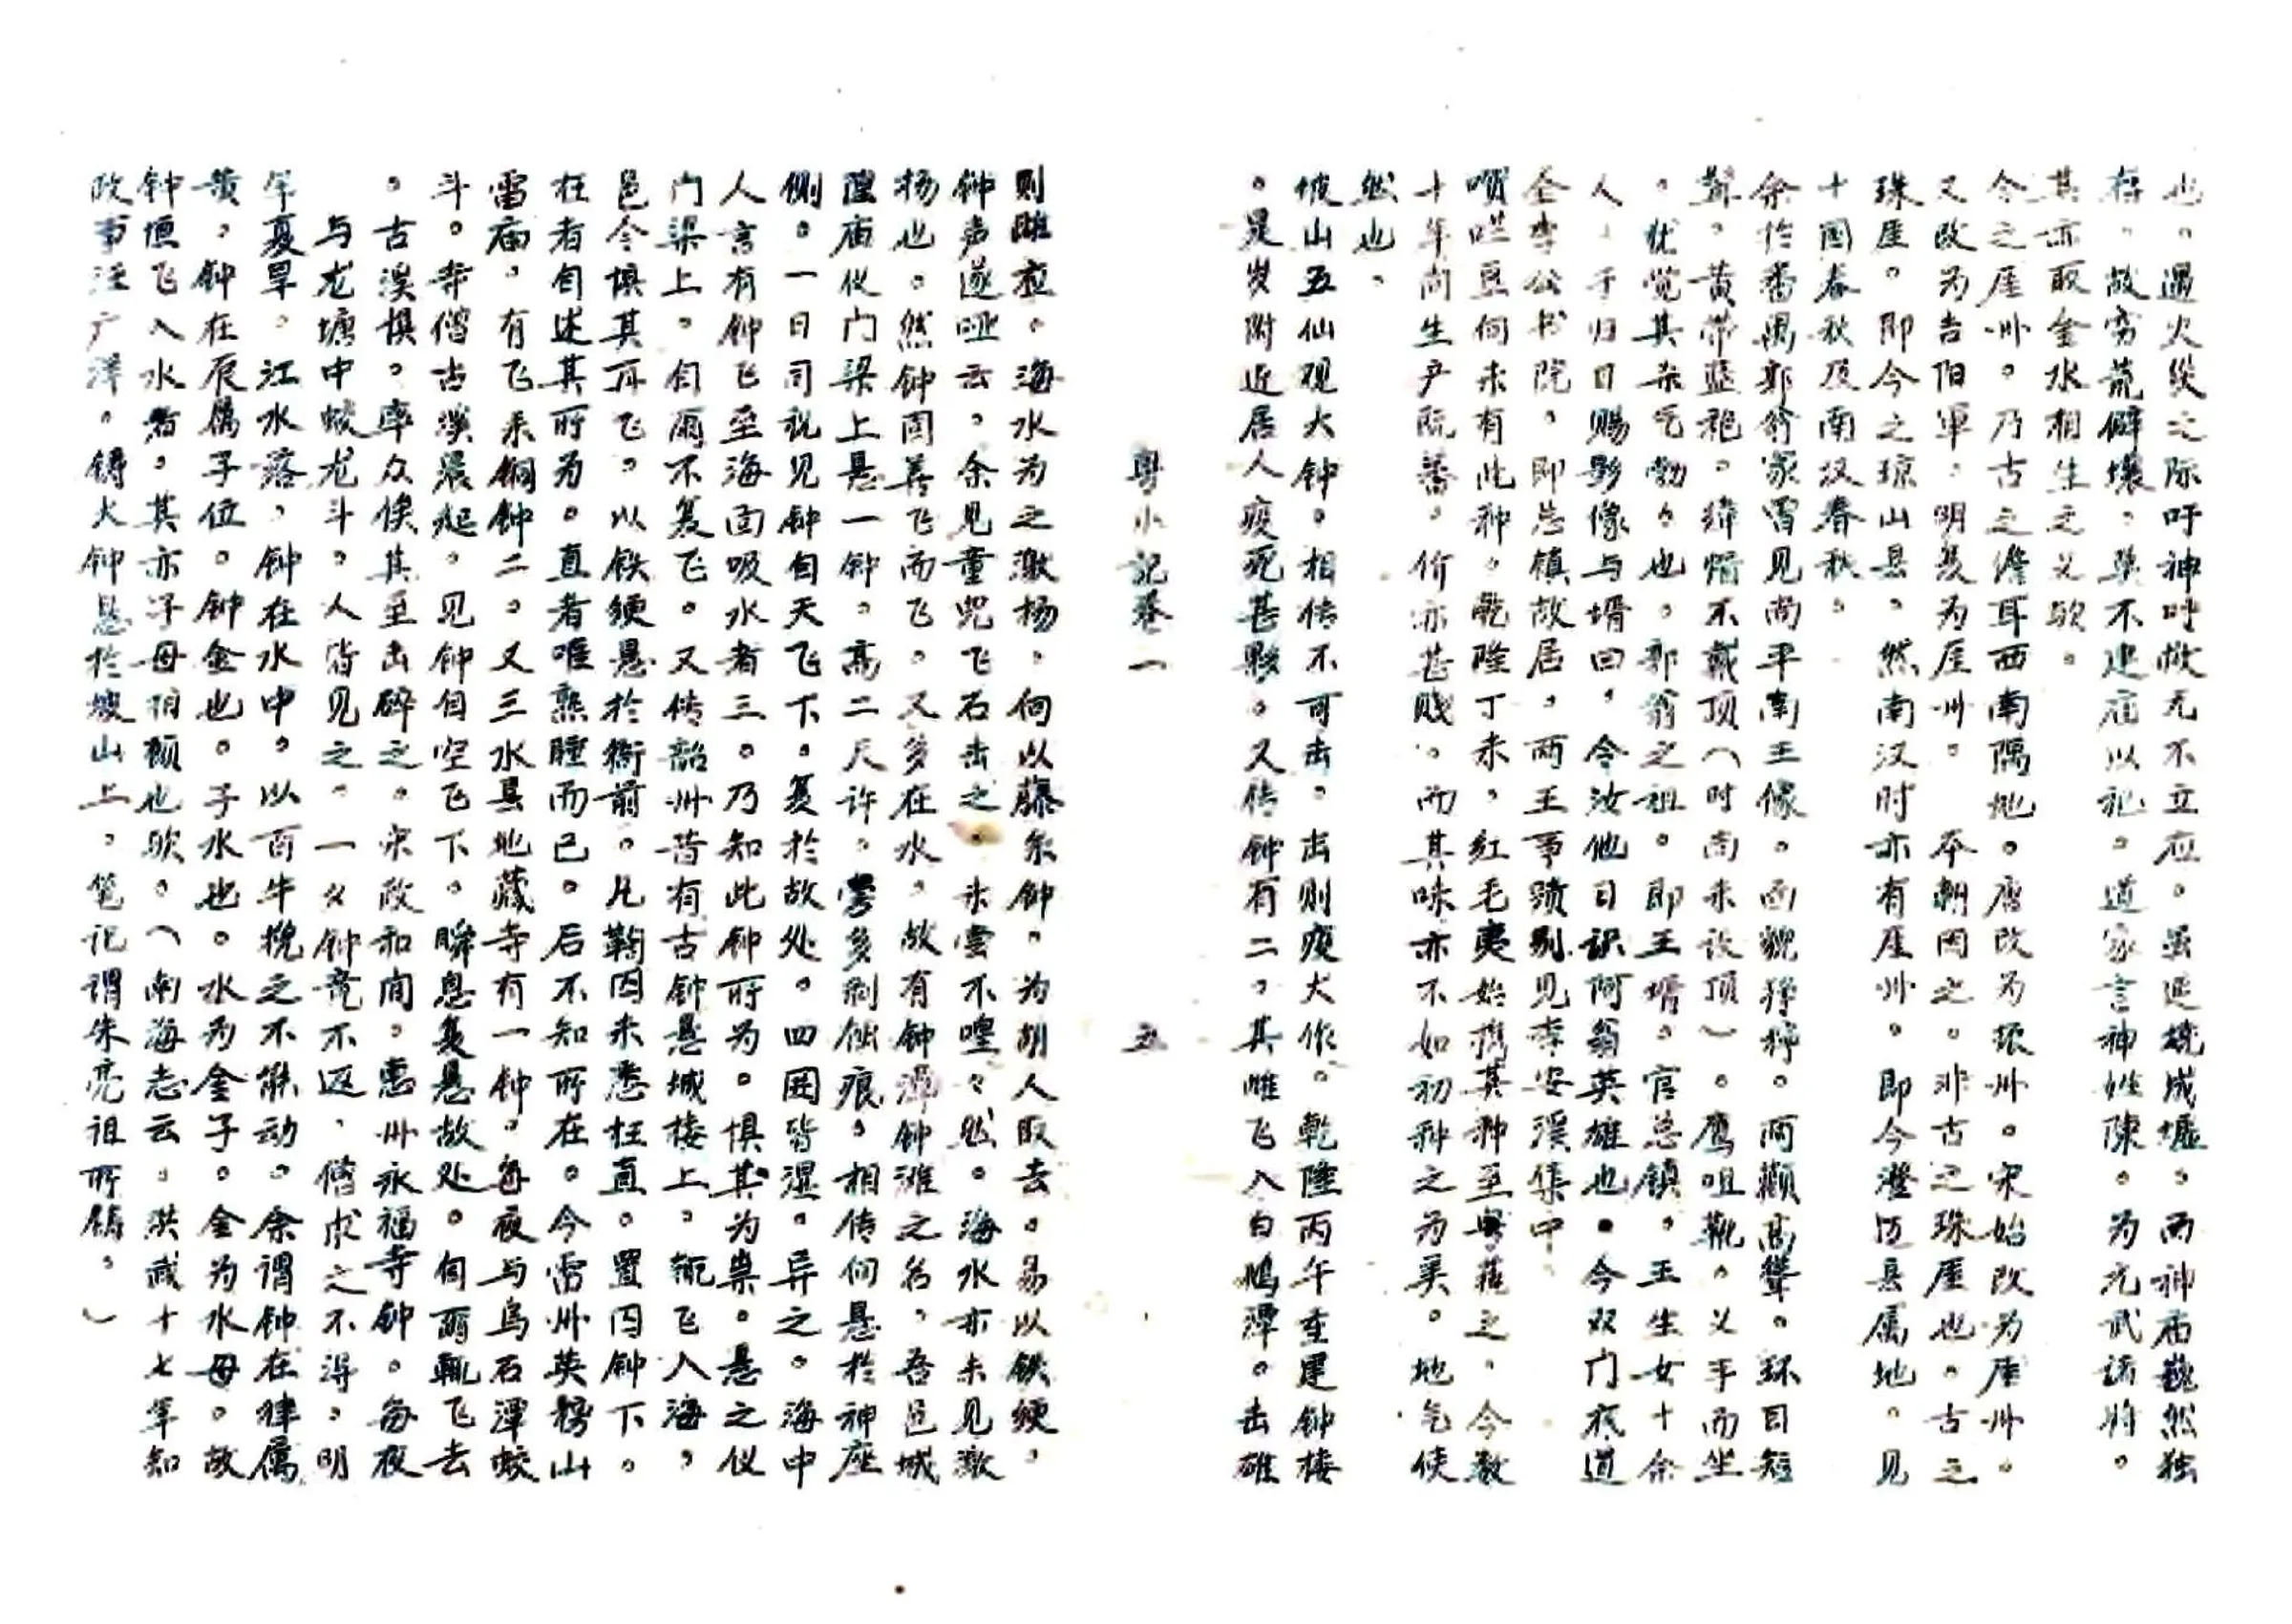 也。遇火災之际吁神呼救无不立应。虽延烧成墟。而神庙巍然独
存。故穷荒僻壤。莫不建庙以祀。道家言神姓陳。为元武诸将。
其亦取金水相生之义欤。
今之厓州。乃古之儋耳西南隅地。唐改为振州。宋始改为厓州。
又改为吉阳军。明复为厓州。本朝因之。非古之珠厓也。古之
珠厓。即今之琼山县。然南汉时亦有厓州。即今澄迈县属地。见
十国春秋及南汉春秋。
余於番禺郭翁家曾见尚平南王像。面貌狰狞。两颧高聳。环目短
鬚。黄带蓝袍。緯帽不戴顶（时尚未设顶）。鹰咀靴。义手而坐
。犹觉其杀气勃勃也。郭翁之祖。即王壻。官总镇。王生女十余
人。于归日日赐影像与壻曰。令汝他日识阿翁英雄也。今双门底道
全李公书院。即总镇故居。两王事蹟别见李安溪集中
嘪哄豆向未有此种。乾隆丁未，红毛夷始携其种至粤蒔之。今数
十年间生产既蕃。价亦甚贱。而其味亦不如初种之为美。地气使
然也。
坡山五仙观大钟。相传不可击。击则疫大作。乾隆丙午重建钟楼
。是岁附近居人疫死甚夥。又传钟有二。其雌飞入白鹅潭。击雄
粤小记卷一
五
则雌应。海水为之激扬。向以藤系钟。为胡人取去。易以铁绠。
钟声遂哑云。余见童兒飞石击之。未尝不喤々然。海水亦未见激
扬也。然钟固善飞而飞。又多在水。故有钟潭钟滩之名。吾邑城
隍庙仪门梁上悬一钟。高二尺许。旁多剥蚀痕。相传向悬於神座
侧。一日司祝见钟自天飞下。复於故处。四囲皆湿。异之。海中
人言有钟飞至海面吸水者三。乃知此钟所为。惧其为祟。悬之仪
门梁上。自爾不复飞。又传韶州昔有古钟悬城楼上。輒飞入海。
邑令惧其再飞。以铁绠悬於衙前。凡鞫囚未悉枉直。置囚钟下。
枉者自述其所为。直者唯熟睡而已。后不知所在。今雷州英榜山
雷庙。有飞来铜钟二。又三水县地藏寺有一钟。每夜与乌石潭蛟
斗。寺僧古溪晨起。见钟自空飞下。瞬息复悬故处。自爾輒飞去
。古溪惧。率众俟其至击碎之。宋政和间。惠州永福寺钟。每夜
与龙塘中蛟龙斗。人皆见之。一夕钟竟不返。僧求之不得。明
年夏旱。江水落。钟在水中。以百牛挽之不能动。余谓钟在律属
黄。钟在辰属子位。钟金也。子水也。水为金子。金为水母。故
钟恒飞入水者。其亦子母相顾也欤。（南海志云。洪武十七年知
政事汪广洋。铸大钟悬於坡山上。笔记谓朱亮祖所铸。）